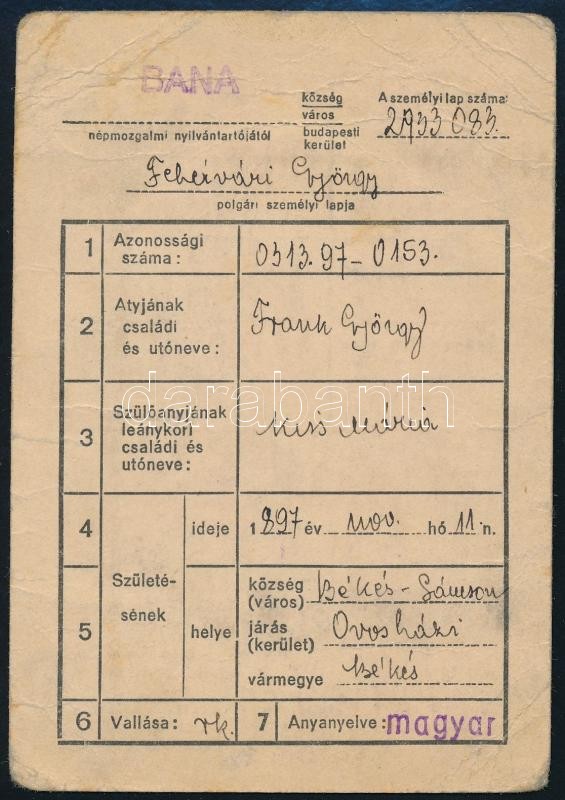 BANA
község
város
budapesti
kerület
A személyi lap száma:
2933 083.
népmozgalmi nyilvántartójától
Fehérvári György
polgári személyi lapja
1 Azonossági száma: 0313.97-0153.
2 Atyjának családi és utóneve: Frank György
3 Szülőanyjának leánykori családi és utóneve: Kiss Mária
4 ideje 1 897 év nov. hó 11 n.
Születé-
sének
5 helye
község (város) Békés-Sámson
járás (kerület) Orosházi
vármegye Békés
6 Vallása: rk. 7 Anyanyelve: magyar
darabanth